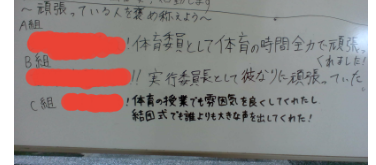 ～頑張っている人を褒め称えよう～
A組
！体育委員として体育の時間全力で頑張って
くれました！
B組
！！実行委員長として彼なりに頑張っていた。
C組
！体育の授業でも雰囲気を良くしてくれたし
結団式でも誰よりも大きな声を出してくれた！